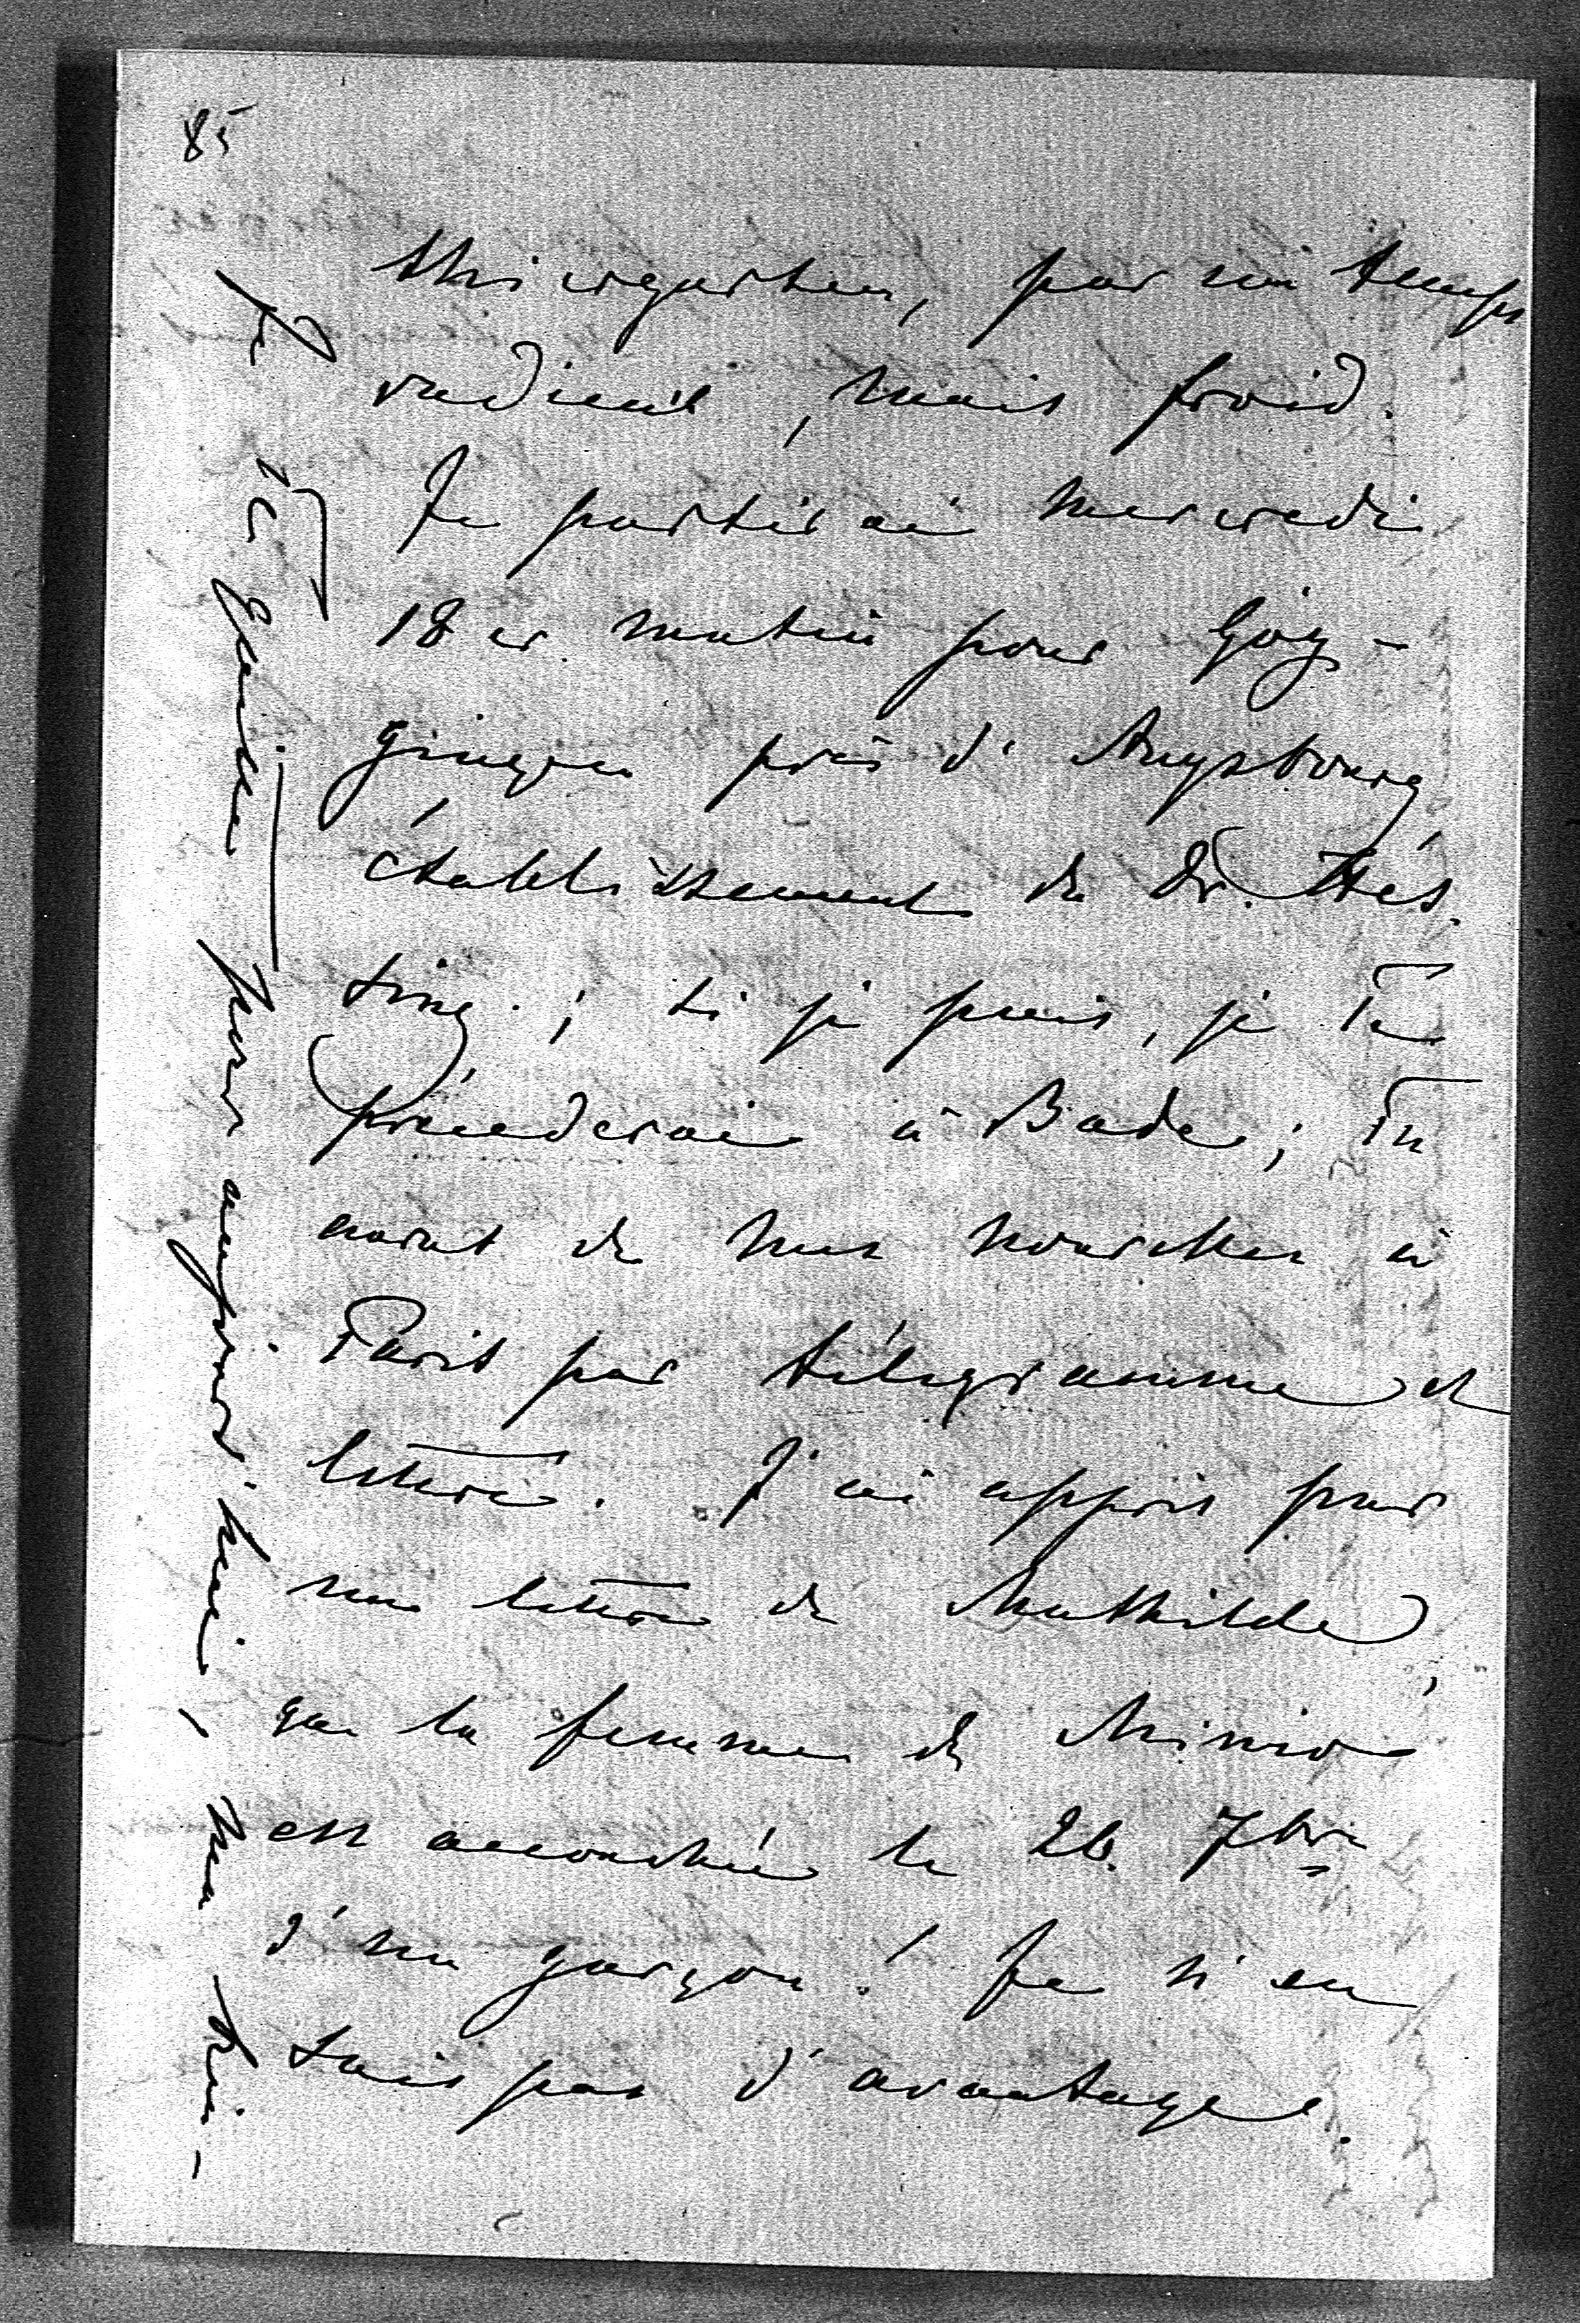 85
Thiergarten, par un temps
radieux, mais froid.
Je partirai mercredi
18 cr. matin pour Gög-
gingen près d'Augsbourg,
établissement du Dr. Hes-
sing; si je puis, je Te
précéderai à Bade; Tu
auras de mes nouvelles à
Paris par télégramme et
lettre. J'ai appris par
une lettre de Mathilde,
que la femme de
est accouchée le 26. 7bre
d'un garçon! Je n'en
sais pas d'avantage.
Je Te
pour aujourd'hui,